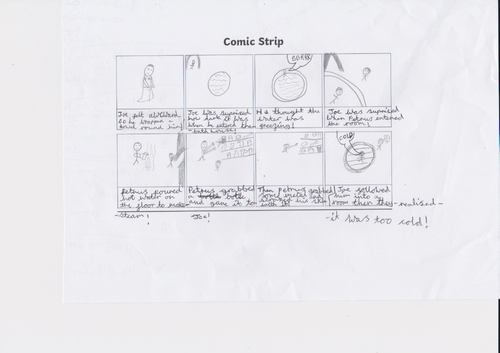 Comic Strip
BRRR
COLD
Joe felt awkward
so he wrapped a
towel round him!
Joe was suprised
how dark it was
when he entered the
bath house!
He thought the
water was
freezing!
Joe was suprised
when Petrus entered
the room!
Petrus poured
hot water on
the floor to make
Steam!
Petrus grabbed
a bottle
and gave it to
Joe!
Then petrus grabbed
some metal and
his skin
with it!
Joe followed
him into a
room then they realised
it was too cold!